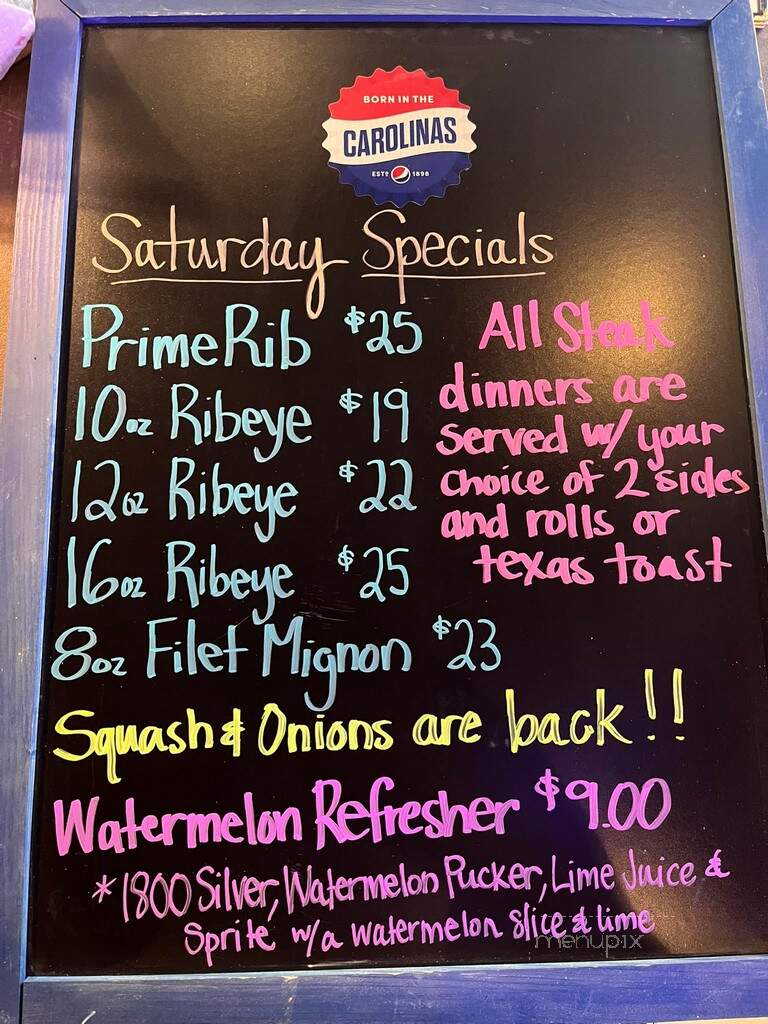 BORN IN THE
CAROLINAS
ESTD 1898
Saturday Specials
Prime Rib $25
10oz Ribeye $19
12oz Ribeye $22
16oz Ribeye $25
8oz Filet Mignon $23
All Steak
dinners are
served w/ your
choice of 2 sides
and rolls or
texas toast
Squash & Onions are back!!
Watermelon Refresher $9.00
*1800 Silver, Watermelon Pucker, Lime Juice &
Sprite w/a watermelon slice & lime
menupix